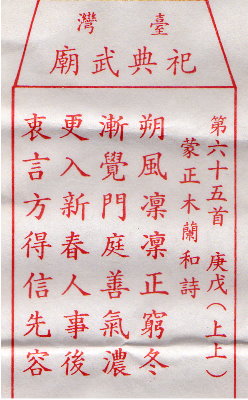 臺灣
祀典武廟
第六十五首 庚戊(上上)
蒙正木蘭和詩
朔風凜凜正窮冬
漸覺門庭善氣濃
更入新春人事後
衷言方得信先容